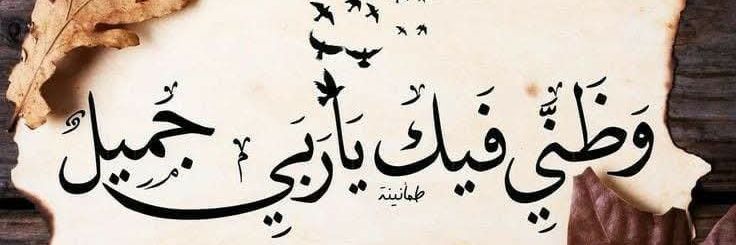 وَظَنِّي فَيكَ يَارَبَي جَُميلٌ
طمأنينة